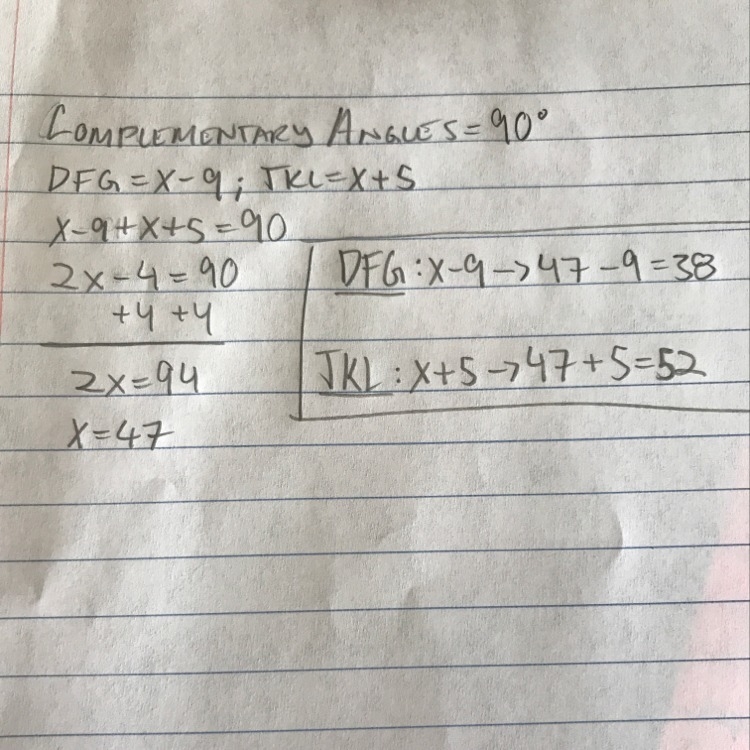 COMPLEMENTARY ANGLES = 90°
DFG = X-9; JKL = X+5
X-9+X+5 = 90
2X-4 = 90
+4 +4
2X = 94
X = 47
DFG: X-9 -> 47-9 = 38
JKL: X+5 -> 47+5 = 52